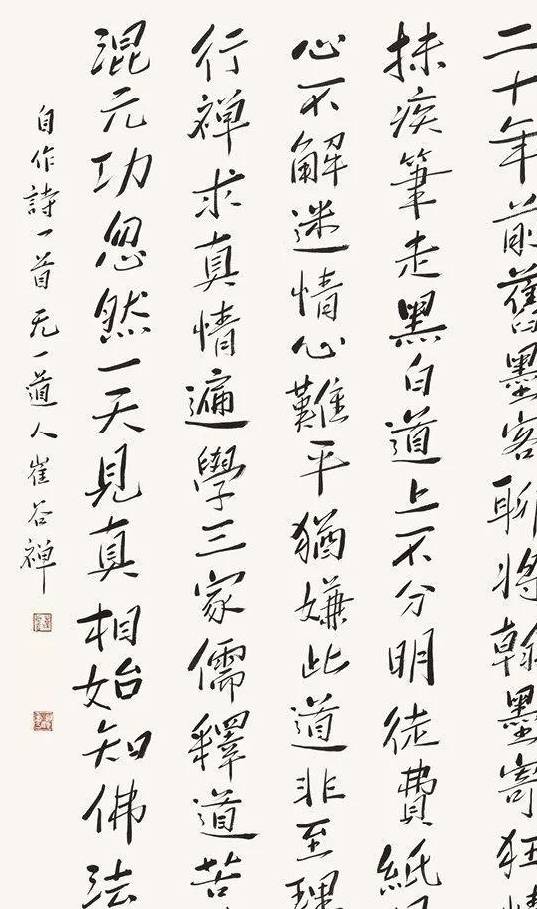 二十年前舊墨客聊將翰墨寄狂情
抹疾筆走黑白道上不分明徒費紙
心不解迷情心難平猶嫌此道非至理
行禪求真情遍學三家儒釋道苦
混元功忽然一天見真相始知佛法
自作詩一首无一道人崔谷禪